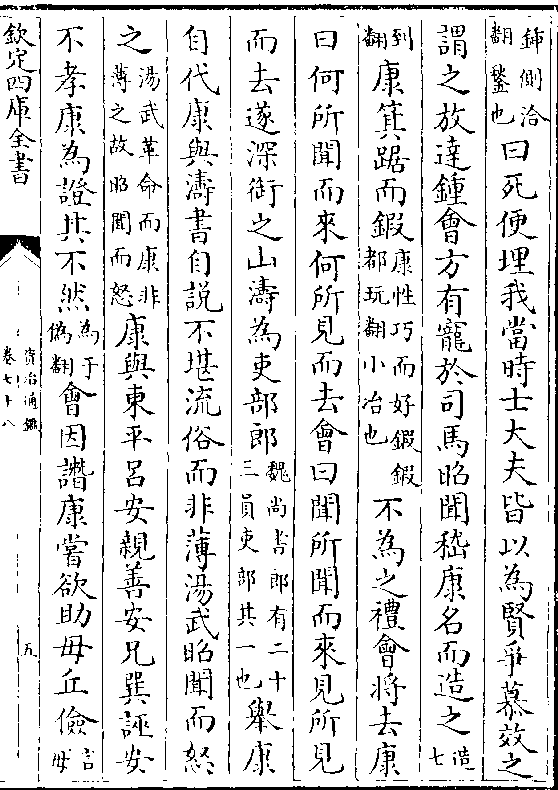 鍤側洽
翻鍫也
曰死便埋我當時士大夫皆以為賢爭慕效之
謂之放達鍾會方有寵於司馬昭聞嵇康名而造之
造七
到
翻
康箕踞而鍜
康性巧而好鍜鍜
都玩翻小冶也
不為之禮會將去康
曰何所聞而來何所見而去會曰聞所聞而來見所見
而去遂深銜之山濤為吏部郎
魏尚書郎有二十
三員吏部其一也
舉康
自代康與濤書自說不堪流俗而非薄湯武昭聞而怒
之
湯武革命而康非
薄之故昭聞而怒
康與東平呂安親善安兄巽誣安
不孝康為證其不然
為于
偽翻
會因譖康嘗欲助毋丘儉
言
毋
欽定四庫全書
資治通鑑
卷七十八
五